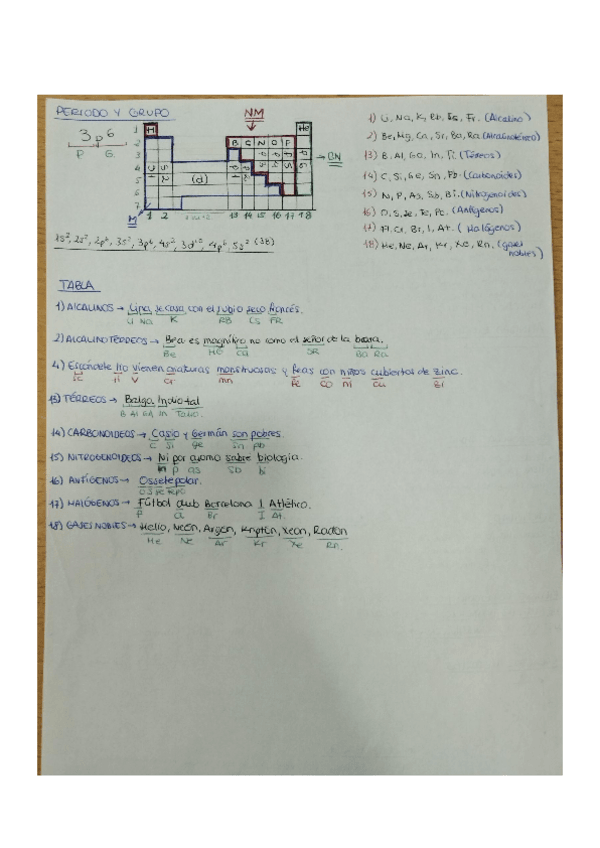 PERIODO Y GRUPO
NM
3p6
P G
1 H He
2 B C N O F
3
4
5 (d)
6
7
GN
M 1 2 13 14 15 16 17 18
1s², 2s², 2p⁶, 3s², 3p⁶, 4s², 3d¹⁰, 4p⁶, 5s² (38)
1) Li, Na, K, Rb, Cs, Fr. (Alcalino)
2) Be, Mg, Ca, Sr, Ba, Ra (Alcalinotérreo)
13) B, Al, Ga, In, Tl. (Térreos)
14) C, Si, Ge, Sn, Pb. (Carbonoides)
15) N, P, As, Sb, Bi. (Nitrogenoides)
16) O, S, Se, Te, Po. (Anfígenos)
17) F, Cl, Br, I, At. (Halógenos)
18) He, Ne, Ar, Kr, Xe, Rn. (gases nobles)
TABLA
1) ALCALINOS → Lina se casa con el rubio seco francés.
Li Na K RB CS FR
2) ALCALINOTÉRREOS → Bea es magnífika no como el señor de la
Be MG CA SR Ba Ra
4) Escóndele tío vienen criaturas monstruosas y feas con niños cubiertos de zinc.
Sc Ti V Cr Mn Fe CO Ni Cu
13) TÉRREOS → Balga Indiotal
B Al GA In
14) CARBONOIDEOS → Casio y Germán son pobres.
C Si Ge Sn Pb
15) NITROGENOIDEOS → Ni por asomo sabre biología.
N P As Sb Bi
16) ANFÍGENOS → Ossetepolar.
O S Se Te Po
17) HALÓGENOS → Fútbol club Barcelona I Atlético.
F Cl Br I At.
18) GASES NOBLES → Helio, Neón, Argón, Kriptón, Xeon, Radón
He Ne Ar Kr Xe Rn.